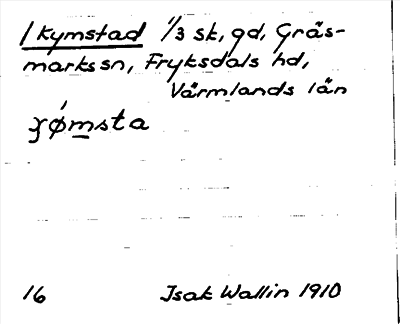 /kymstad 1/3 sk, gd, Gräs-
markssn, Fryksdals hd,
Värmlands län
ꭓǿmsta
16 Isak Wallin 1910